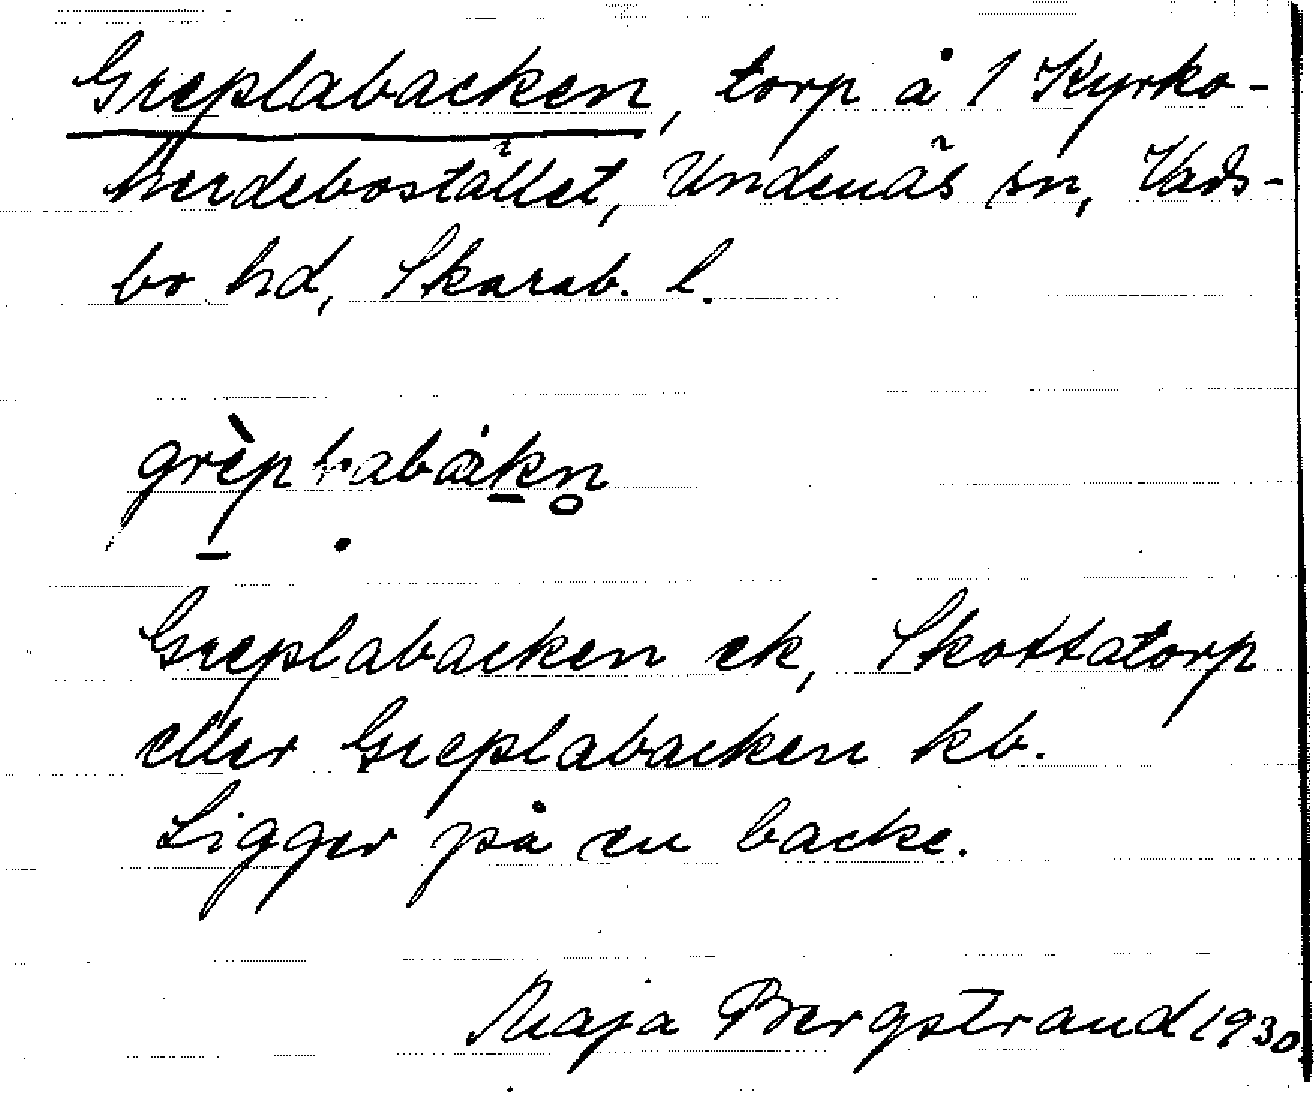 Greplabacken, torp å 1 Kyrko-
herdebostället, Undenäs sn, Vads-
bo hd, Skarab. l.
Greplabacken ek, Skottatorp
eller Greplabacken kb.
Ligger på en backe.
Maja Bergstrand 1930